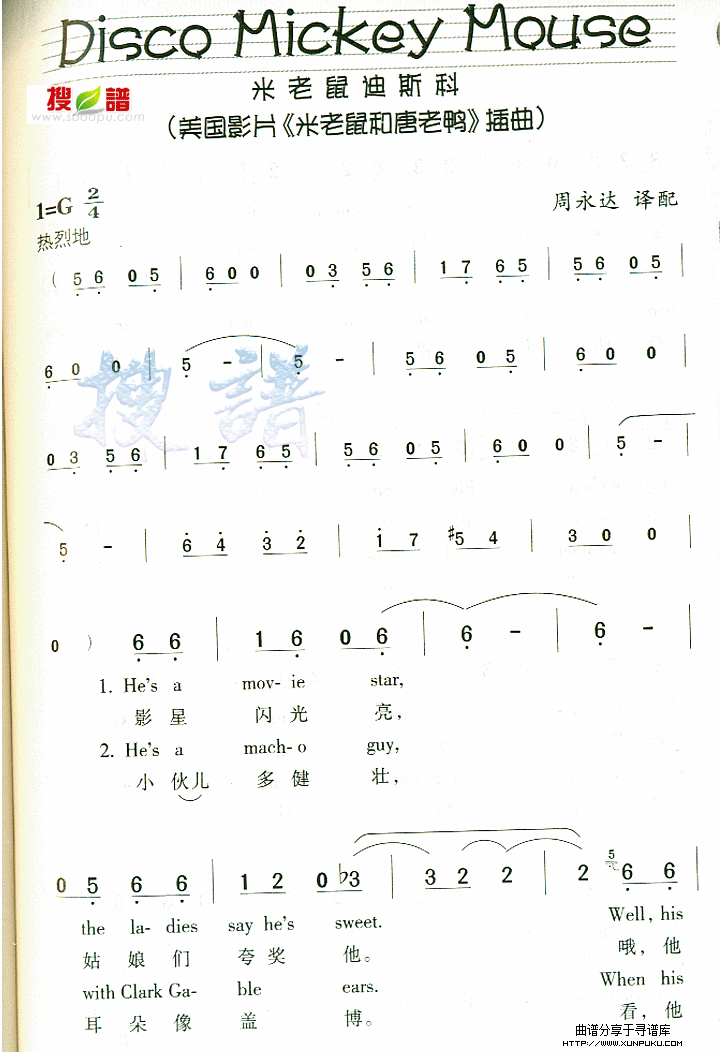 Disco Mickey Mouse
米老鼠迪斯科
搜谱
www.sooopu.com
(美国影片《米老鼠和唐老鸭》插曲)
1=G 2/4
周永达 译配
热烈地
( 5 6 0 5 | 6 0 0 | 0 3 5 6 | 1 7 6 5 | 5 6 0 5 |
6 0 0 | 5 - | 5 - | 5 6 0 5 | 6 0 0 |
搜譜
0 3 5 6 | 1 7 6 5 | 5 6 0 5 | 6 0 0 | 5 - |
5 - | 6 4 3 2 | 1 7 #5 4 | 3 0 0 |
0 ) 6 6 | 1 6 0 6 | 6 - | 6 - |
1. He's a mov- ie star,
影星 闪光 亮,
2. He's a mach- o guy,
小伙儿 多健 壮,
0 5 6 6 | 1 2 0 b3 | 3 2 2 | 2 5 6 6 |
the la- dies say he's sweet. Well, his
姑娘们 夸奖 他。 哦,他
with Clark Ga- ble ears. When his
耳朵像 盖 博。 看,他
曲谱分享于寻谱库
HTTP://WWW.XUNPUKU.COM